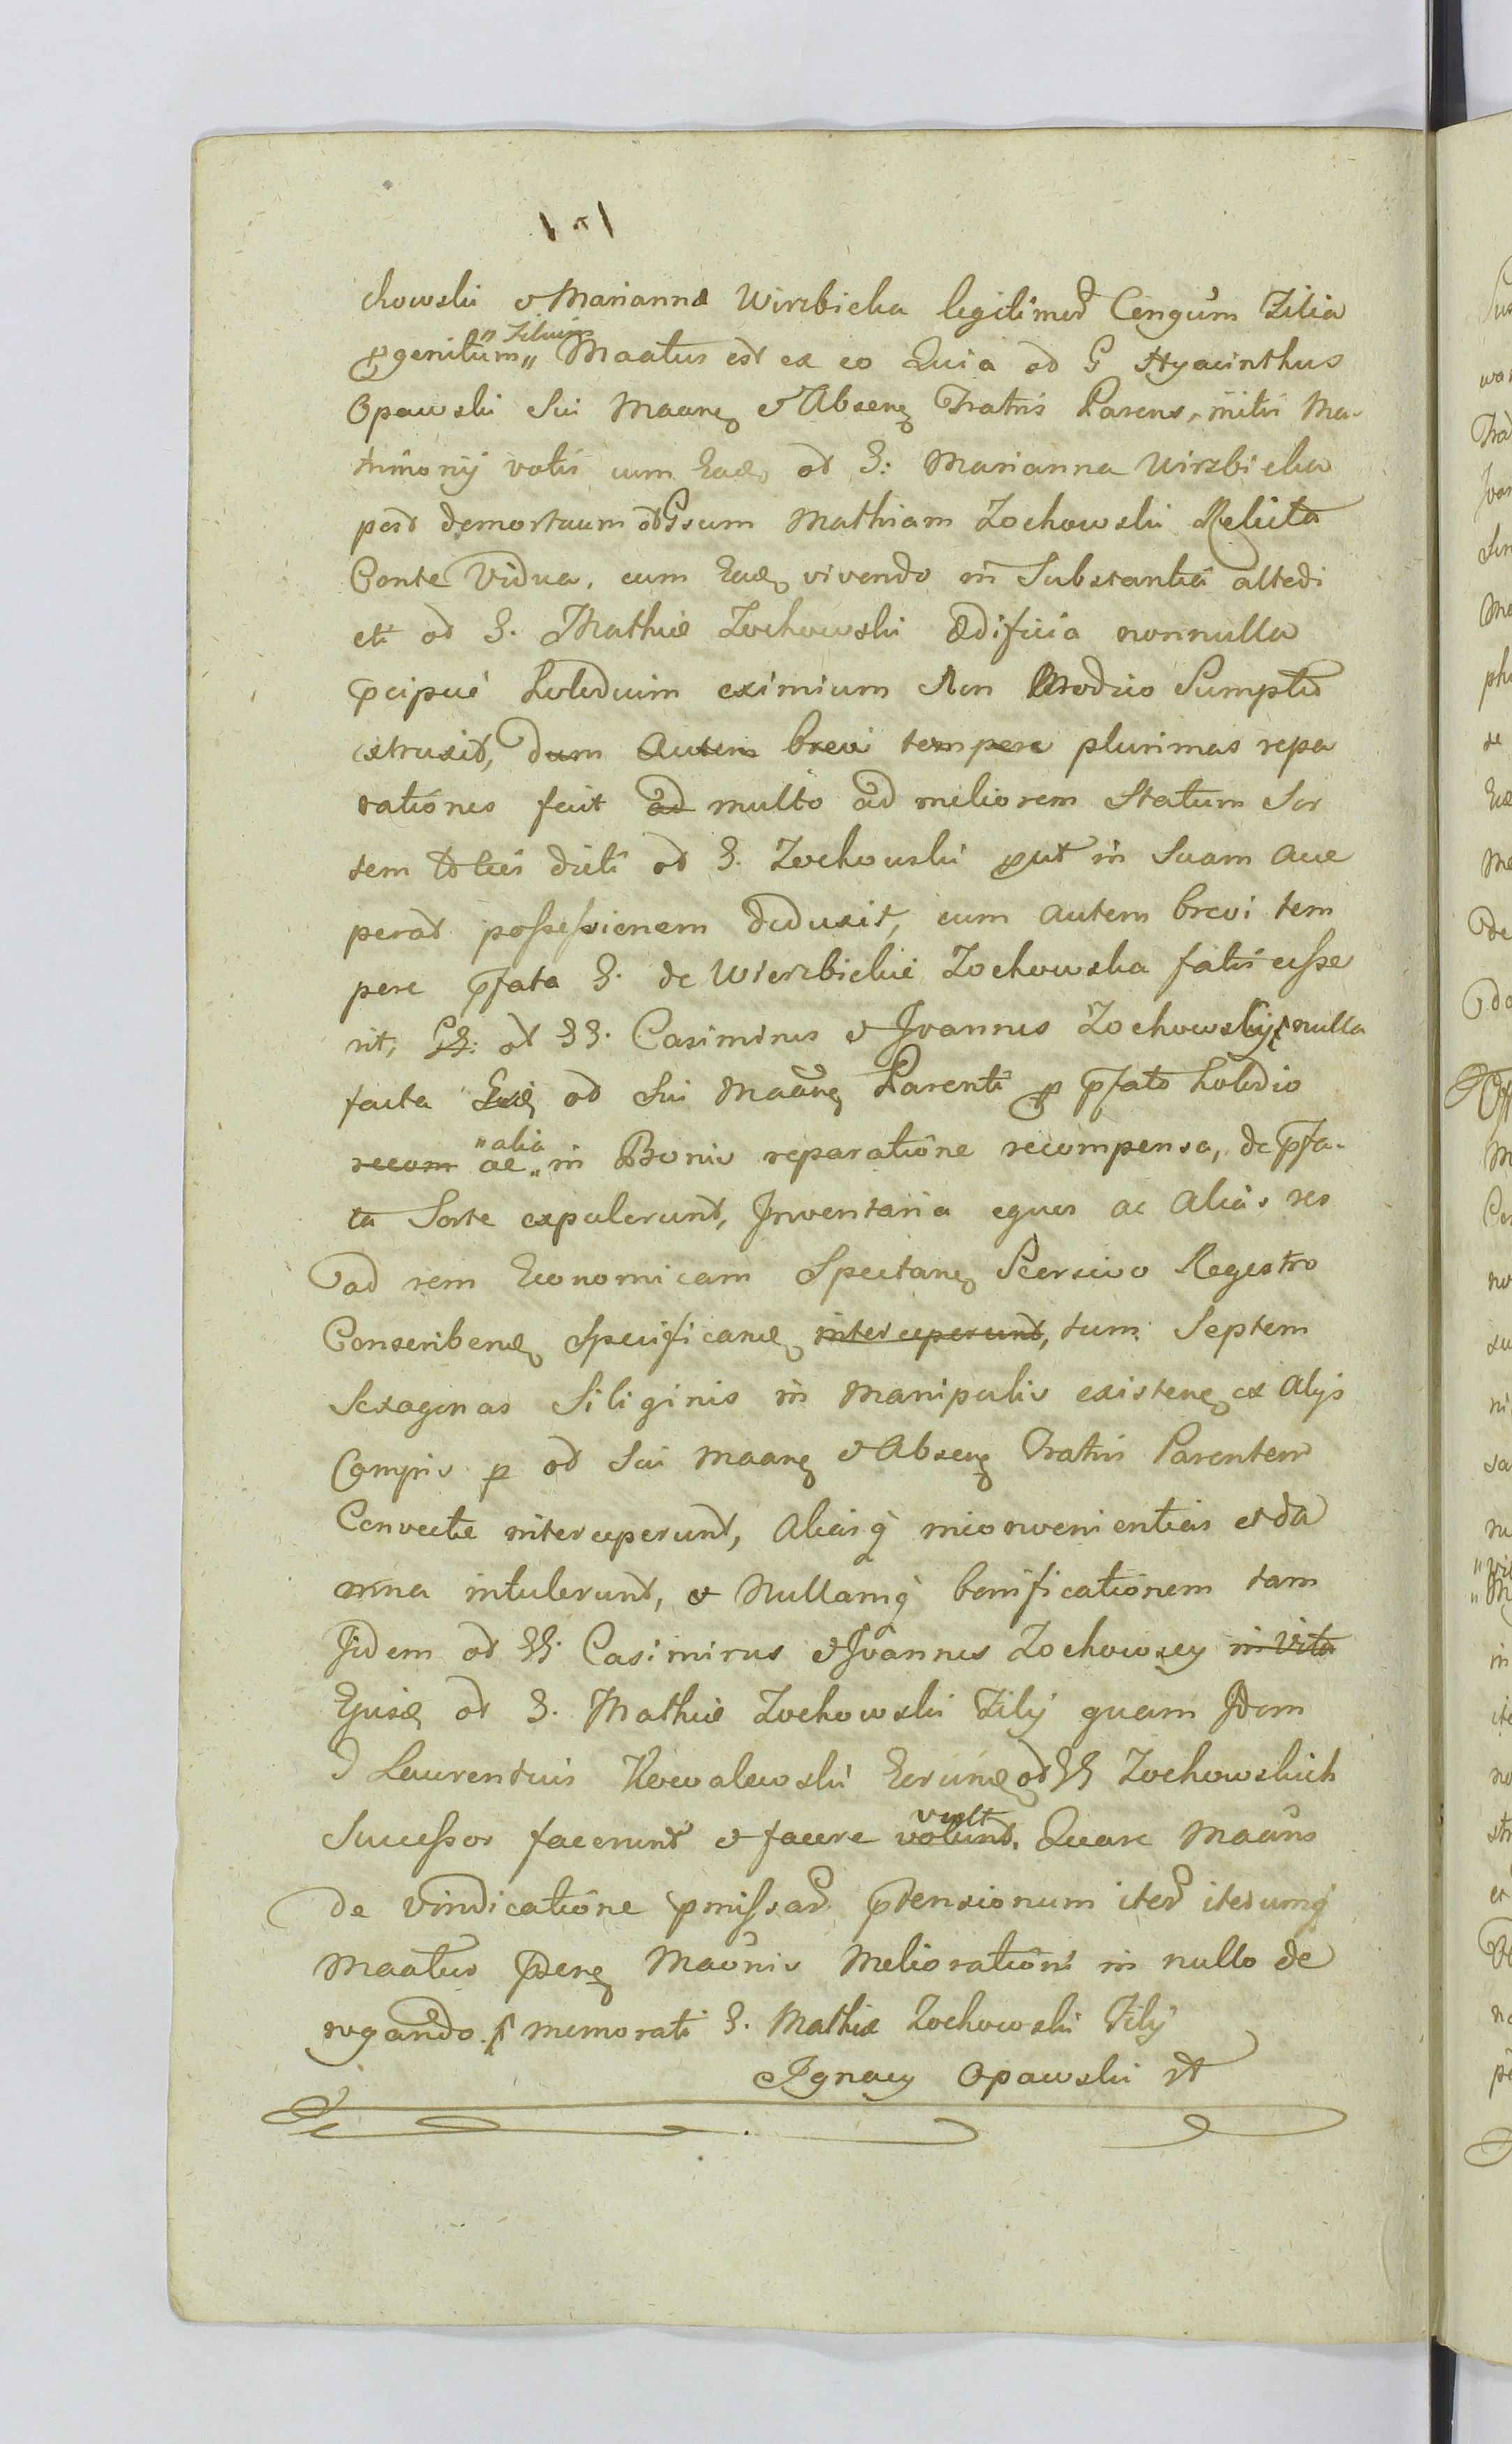 chowski et Marianna Wirzbicka legitimor Congum Filia
"Filium"
pgenitum,, Maatus est ex eo Quia od G Hyacinthus
Opawski Sui Maanq et Absenq Fratris Parens, initis Ma-
trimonij votis cum Eadq od G: Marianna Wirzbicka
post demortuum od Gsum Mathiam Zochowski Relicta
Conte Vidua, cum Eadq vivendo in Substantia altedi
cti od G. Mathiæ Zochowski Ædificia nonnulla
pcipue Lobdium eximium Non Modico Sumptu
extruxit, dum autem brevi tempere plurimas repa
rationes fecit ad multo ad meliorem Statum Sor
tem dicti od G. Zochowski put in Suam acce
perat possessionem deduxit, cum autem brevi tem
pere pfata G. de Wierzbickie Zochowska fatis cesse
rit, GG. od GG. Casimirus et Joannes Zochowskij nulla
facta Eidq od Sui Maanq Parenti p pfato Lobdio
"alia
recom ac,, in Bonis reparatione recompensa, de pfa-
ta Sorte expulerunt, Inventaria eques ac Alias res
ad rem Economicam Spectanq Scersivo Regestro
Conscribendq Specificandq interceperunt, tum Septem
Sexagenas Siliginis in Manipulis existenq ex Alijs
Campis p od Sui Maanq et Absenq Fratris Parentem
Convectæ interceperunt, Aliasq inconvenientias et da
mna intulerunt, et Nullamq bonificationem tam
Jidem od GG. Casimirus et Joannes Zochowscy in vita
Ejusdq od G. Mathiæ Zochowski Filij quam Idem
G Laurentius Kowalewski Eorundq od GG Zochowskich
vult
Successor facerunt et facere volunt. Quare Maans
de vindicatione pmissar ptensionum iter iterumq
Maatur psenq Maonis Melioratiōni in nullo de
rogando. memorati G. Mathiæ Zochowski Filij
Ignacy Opawski